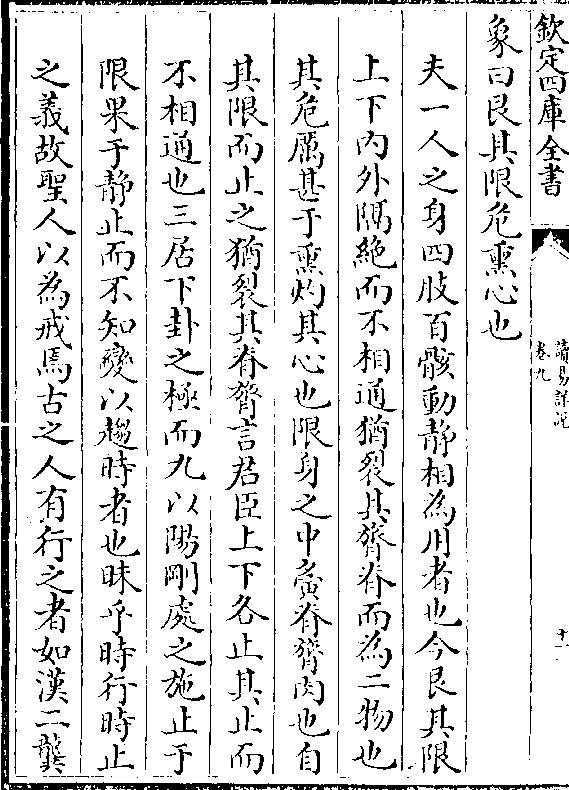 欽定四庫全書
讀易詳說
卷九
十一
象曰艮其限危熏心也
夫一人之身四肢百骸動靜相為用者也今艮其限
上下內外隔絶而不相通猶裂其膂脊而為二物也
其危厲甚于熏灼其心也限身之中夤脊膂肉也自
其限而止之猶裂其脊膂言君臣上下各止其止而
不相通也三居下卦之極而九以陽剛處之施止于
限果于靜止而不知變以趨時者也昧乎時行時止
之義故聖人以為戒焉古之人有行之者如漢二龔